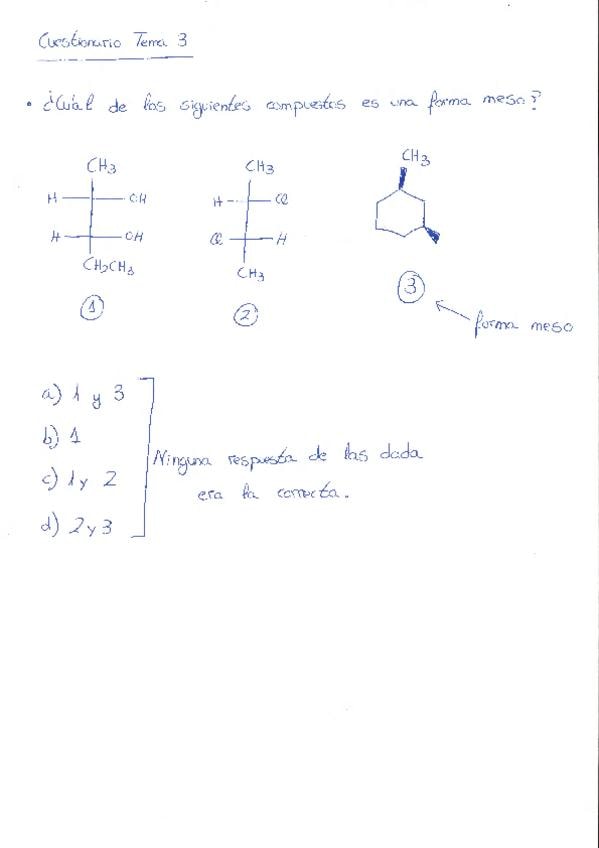 Cuestionario Tema 3
• ¿Cuál de los siguientes compuestos es una forma meso?
CH3
H OH
H OH
CH2CH3
1
CH3
H Cl
Cl H
CH3
2
CH3
3
forma meso
a) 1 y 3
b) 1
c) 1 y 2
d) 2 y 3
Ninguna respuesta de las dada
era la correcta.